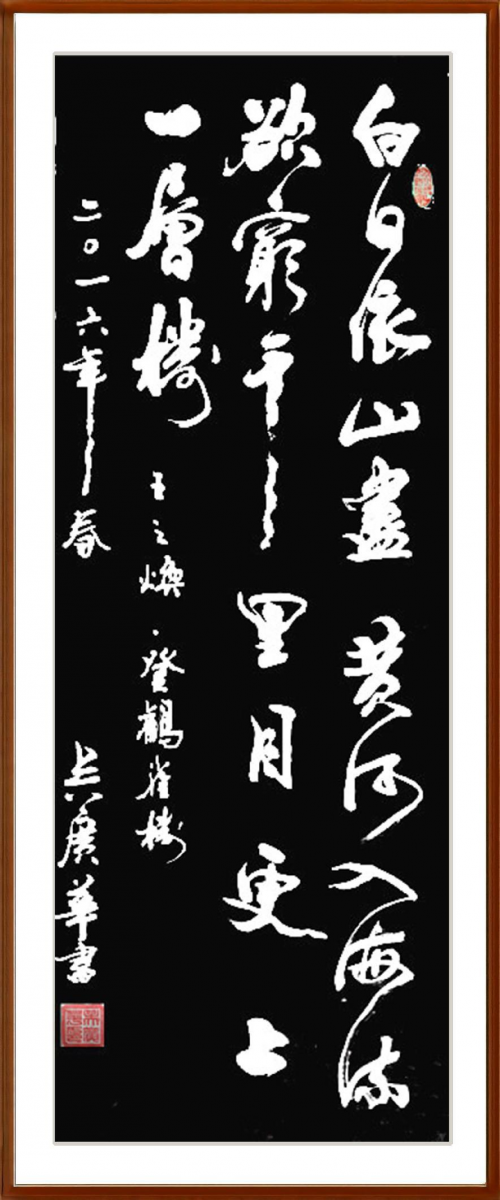 白日依山盡 黃河入海流
欲窮千里目更上
一層樓 王之煥·登鸛雀樓
二〇一六年春 吳廣華書